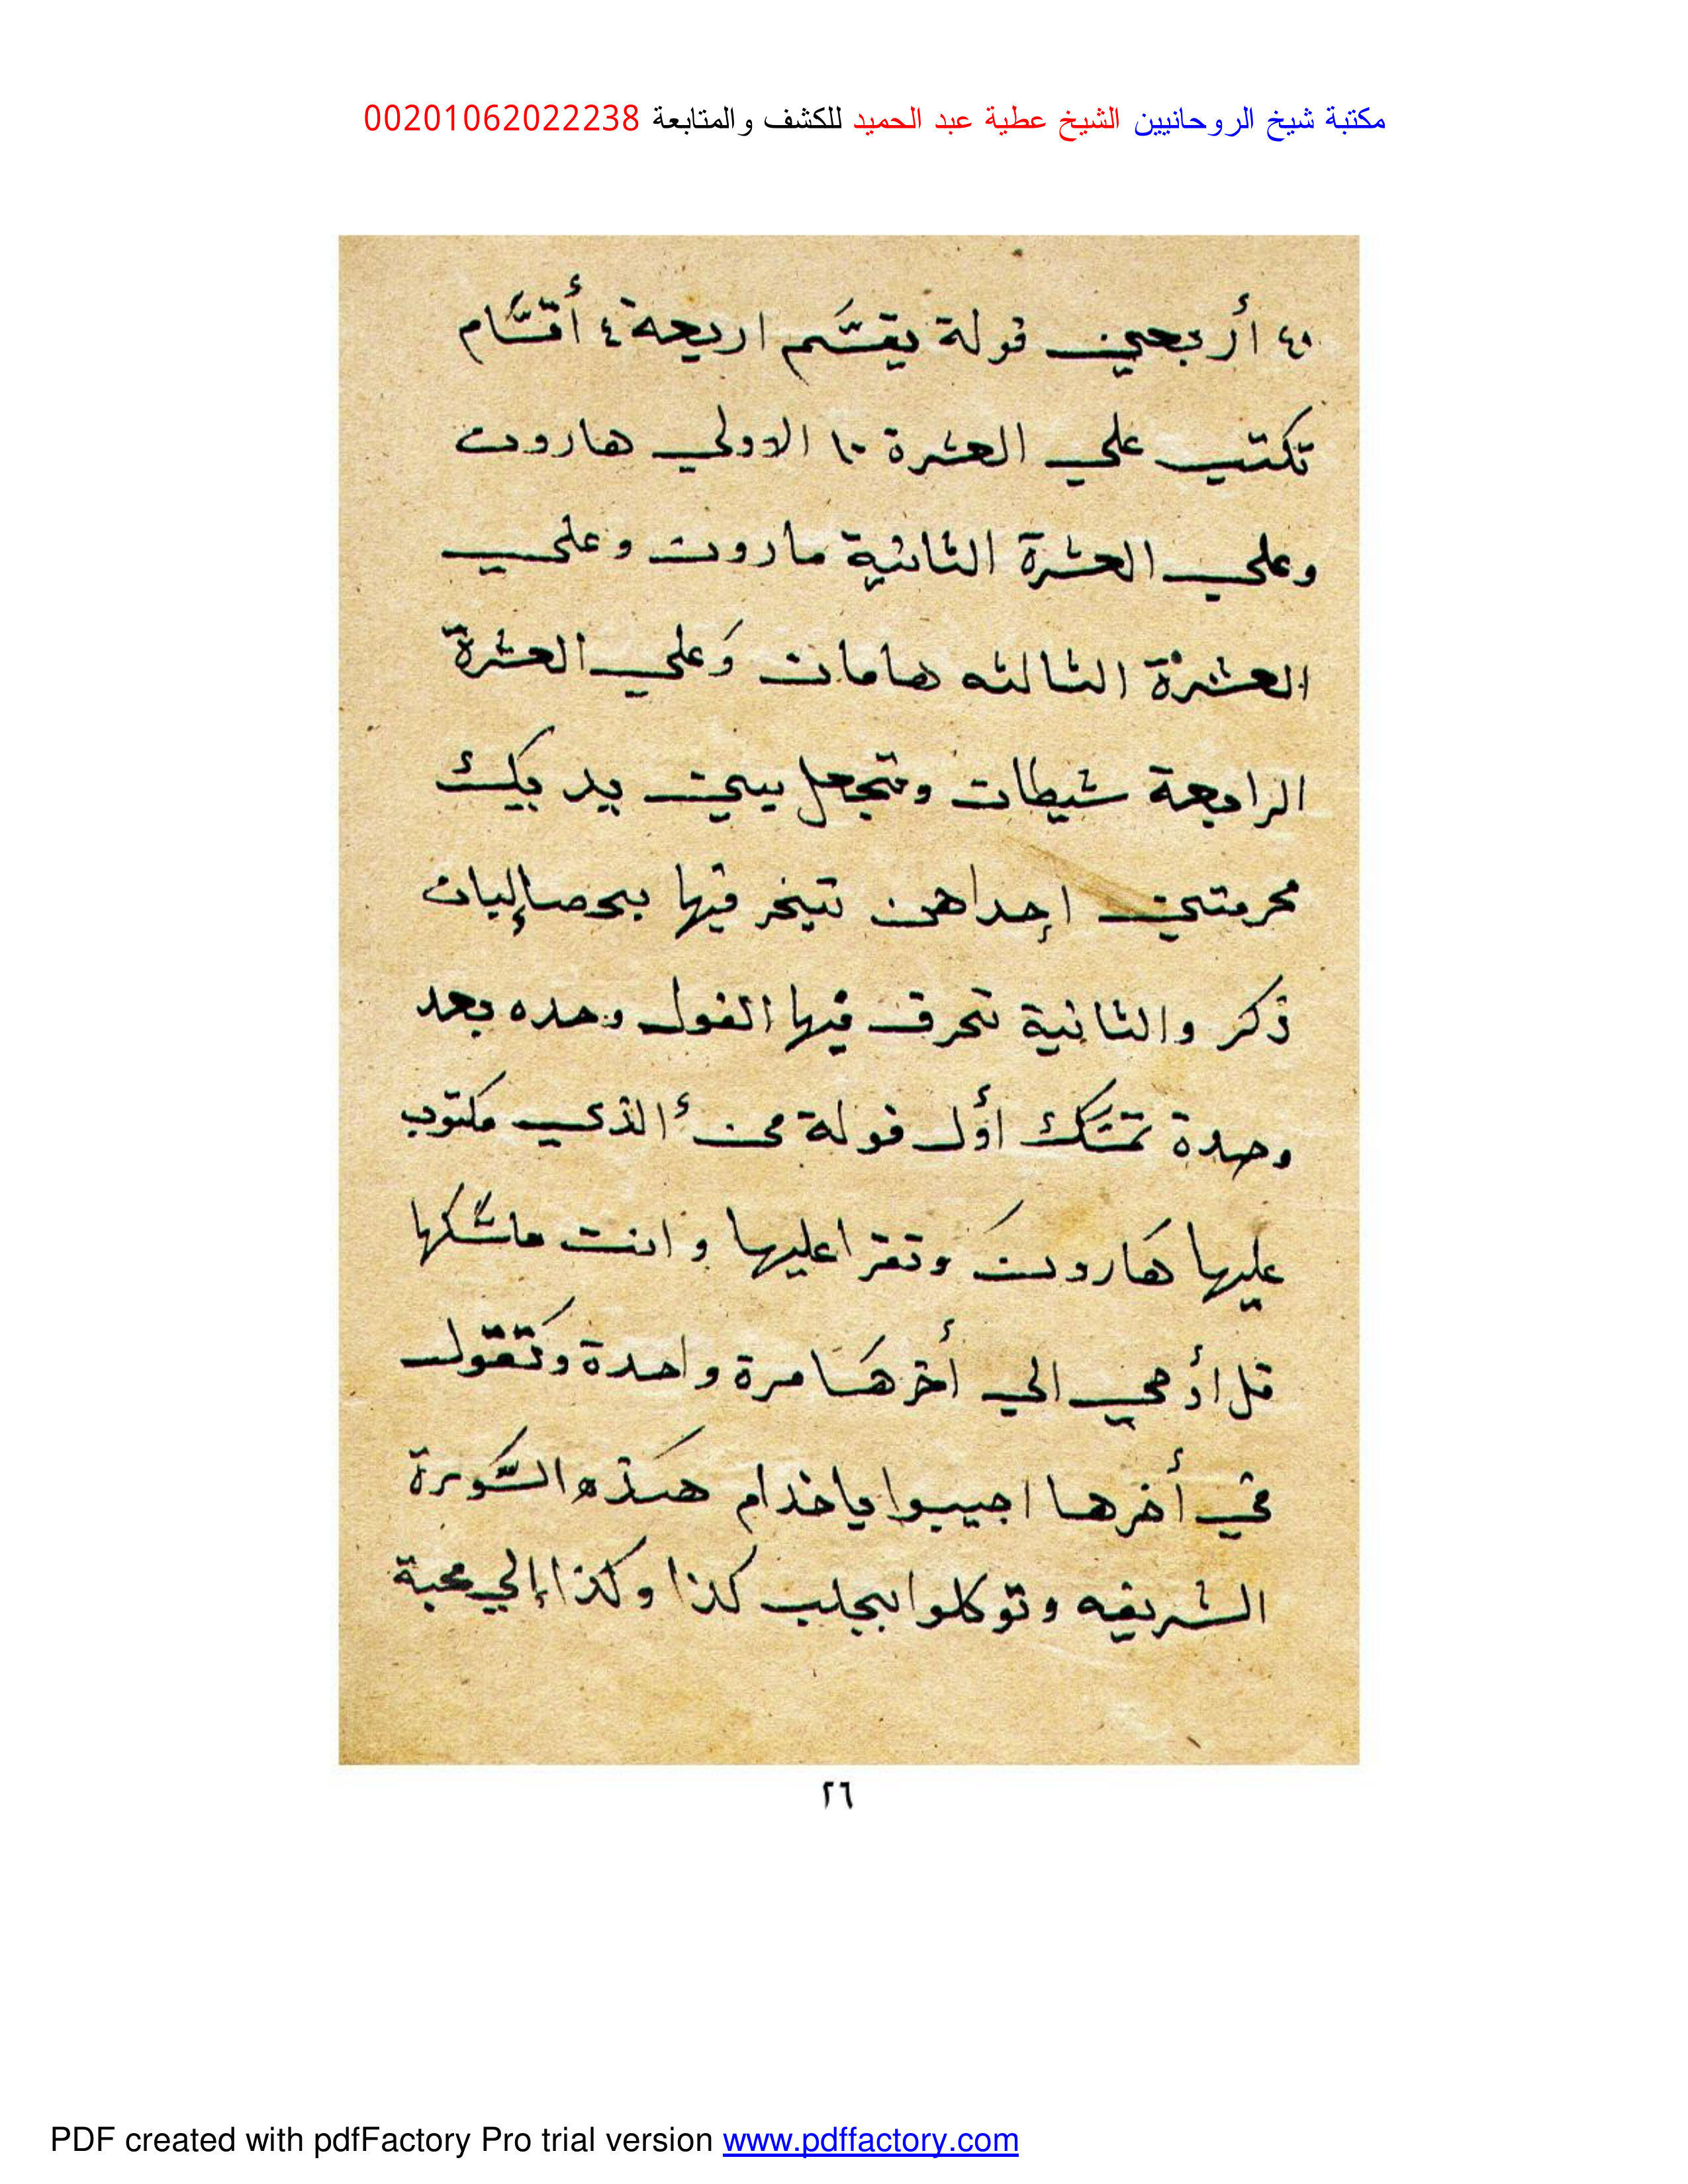 مكتبة شيخ الروحانيين الشيخ عطية عبد الحميد للكشف والمتابعة 00201062022238
٤٠ أربعين فولة يقسَّم اربعة ٤ أقسَّام
تكتب علي العشرة ١٠ الاولي هاروت
وعلي العشرة الثانية ماروت وعلي
العشرة الثالثه هامان وَعلي العشرة
الرابعة شيطان وتجعل بين يديك
مجرمتين إحداهن تبخر فيها بحصالبان
ذكر والثانية تحرق فيها الفول وحده بعد
وحدة تمسَك أول فولة من الذي مكتوب
عليها هَاروت وتقرا عليها وانت ماسَكها
قل أوحي الي أخرهَا مرة واحدة وتَقول
في أخرها اجيبوا ياخدام هَذه السَّورة
الشريفه وتوكلوا بجلب كذا وكذا إلي محبة
٢٦
PDF created with pdfFactory Pro trial version www.pdffactory.com